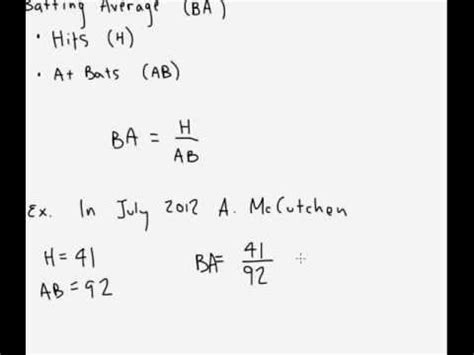 Batting Average (BA)
• Hits (H)
• At Bats (AB)
BA = H / AB
Ex. In July 2012 A. McCutchen
H = 41
AB = 92
BA = 41 / 92